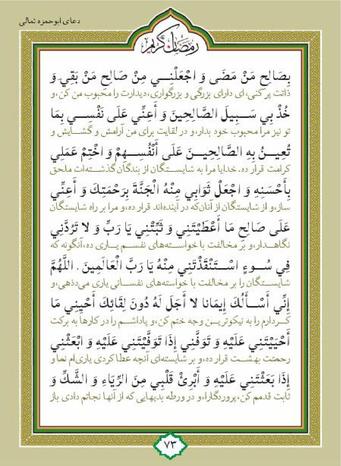 دعای ابوحمزه ثمالی
رمضان کریم
بِصالِحِ مَنْ مَضَى وَ اجْعَلْنِي مِنْ صَالِحِ مَنْ بَقِيَ وَ
ذاتت پر کنی، ای دارای بزرگی و بزرگواری، دیدارت را محبوب من کن، و
خُذْ بِي سَبِيلَ الصَّالِحِينَ وَ أَعِنِّي عَلَى نَفْسِي بِمَا
تو نیز مرا محبوب خود بدار، و در لقایت برای من آرامش و گشایش و
تُعِينُ بِهِ الصَّالِحِينَ عَلَى أَنْفُسِهِمْ وَ اخْتِمْ عَمَلِي
کرامت قرار ده. خدایا مرا به شایستگان از بندگان گذشته‌ات ملحق
بِأَحْسَنِهِ وَ اجْعَلْ ثَوَابِي مِنْهُ الْجَنَّةَ بِرَحْمَتِكَ وَ أَعِنِّي
ساز، و از شایستگان از آنان که در آینده‌اند قرار ده، و مرا بر راه شایستگان
عَلَى صَالِحِ مَا أَعْطَيْتَنِي وَ ثَبِّتْنِي يَا رَبِّ وَ لا تَرُدَّنِي
نگاهدار، و بر مخالفت با خواسته‌های نفسم یاری ده، آنگونه که
فِي سُوءٍ اسْتَنْقَذْتَنِي مِنْهُ يَا رَبَّ الْعَالَمِينَ . اللَّهُمَّ
شایستگان را بر مخالفت با خواسته‌های نفسانی یاری می‌دهی، و
إِنِّي أَسْأَلُكَ إِيمَانا لا أَجَلَ لَهُ دُونَ لِقَائِكَ أَحْيِنِي مَا
کردارم را به نیکوترین وجه ختم کن، و پاداشم را در کارها به برکت
أَحْيَيْتَنِي عَلَيْهِ وَ تَوَفَّنِي إِذَا تَوَفَّيْتَنِي عَلَيْهِ وَ ابْعَثْنِي
رحمتت بهشت قرار ده، و بر شایسته‌ای آنچه عطا کردی یاری‌ام نما و
إِذَا بَعَثْتَنِي عَلَيْهِ وَ أَبْرِئْ قَلْبِي مِنَ الرِّيَاءِ وَ الشَّكِّ وَ
ثابت قدمم کن، پروردگارا، و در ورطه بدیهایی که از آنها نجاتم دادی باز
۷۳